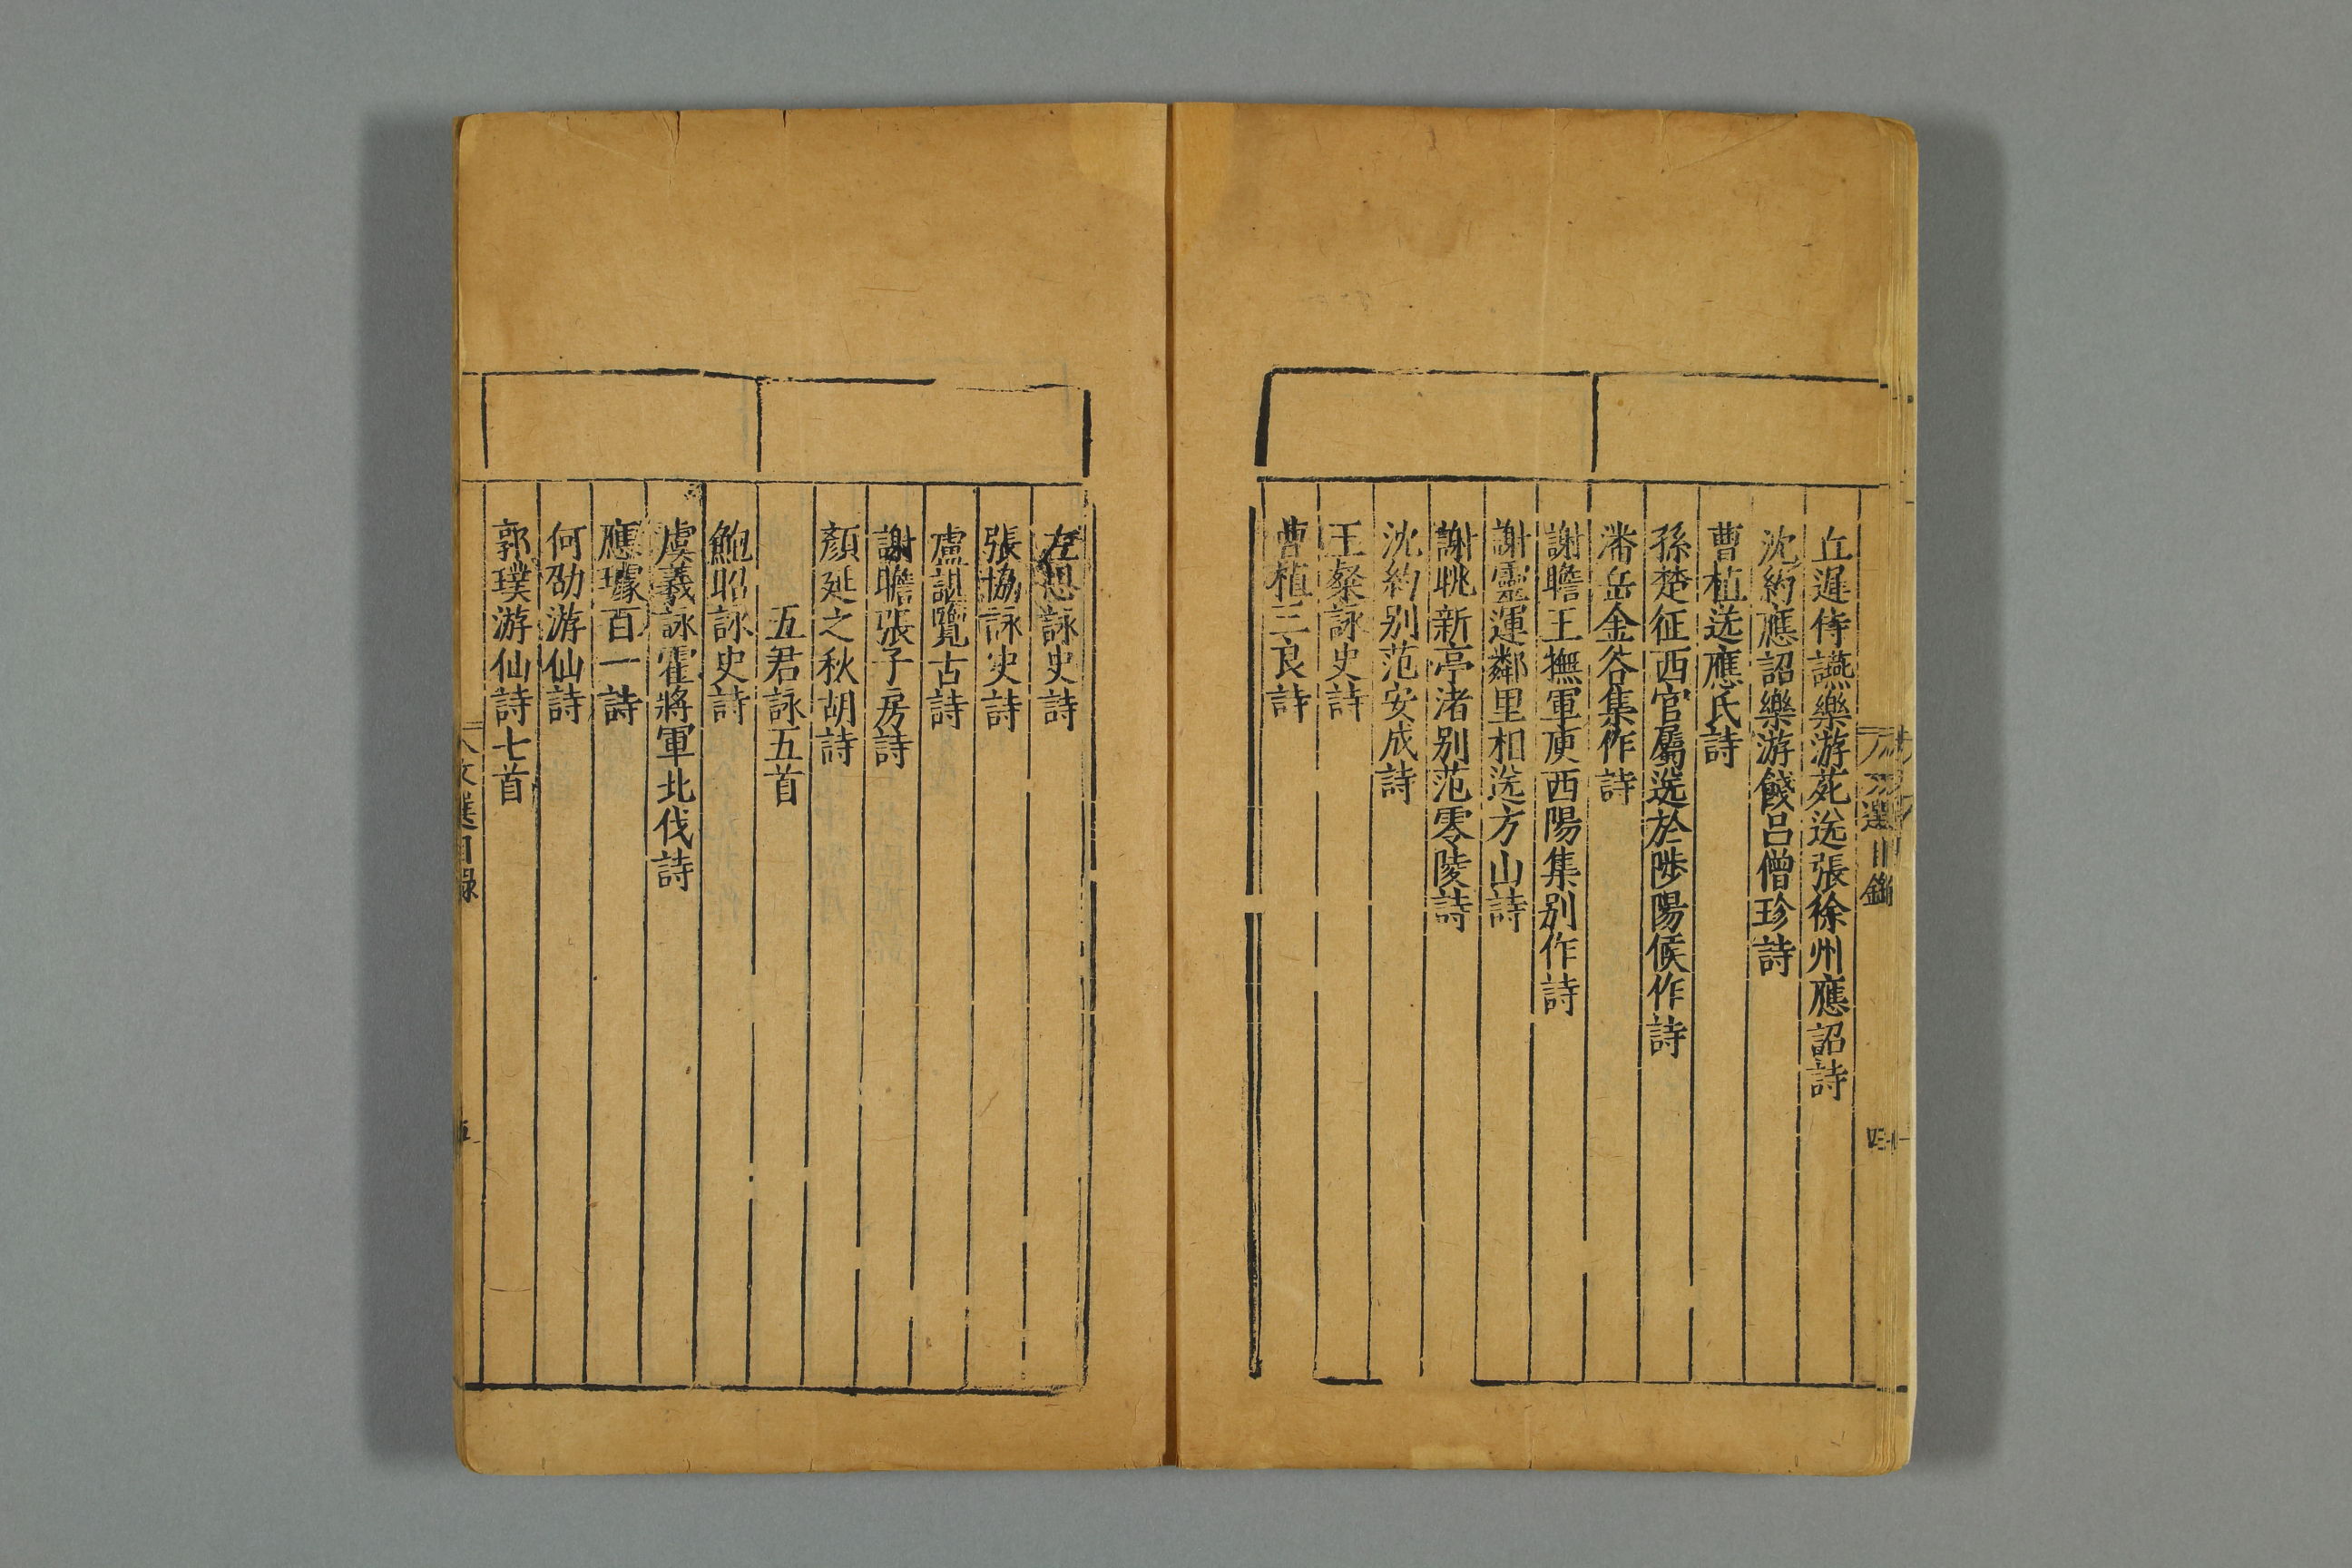 丘遲侍讌樂游苑送張徐州應詔詩
沈約應詔樂游餞呂僧珍詩
曹植送應氏詩
孫楚征西官屬送於陟陽候作詩
潘岳金谷集作詩
謝瞻王撫軍庾西陽集別作詩
謝靈運鄰里相送方山詩
謝眺新亭渚别范零陵詩
沈約别范安成詩
王粲詠史詩
曹植三良詩
左思詠史詩
張協詠史詩
盧諶覽古詩
謝瞻張子房詩
顏延之秋胡詩
五君詠五首
鮑昭詠史詩
虞羲詠霍將軍北伐詩
應璩百一詩
何劭游仙詩
郭璞游仙詩七首
文選目錄
五